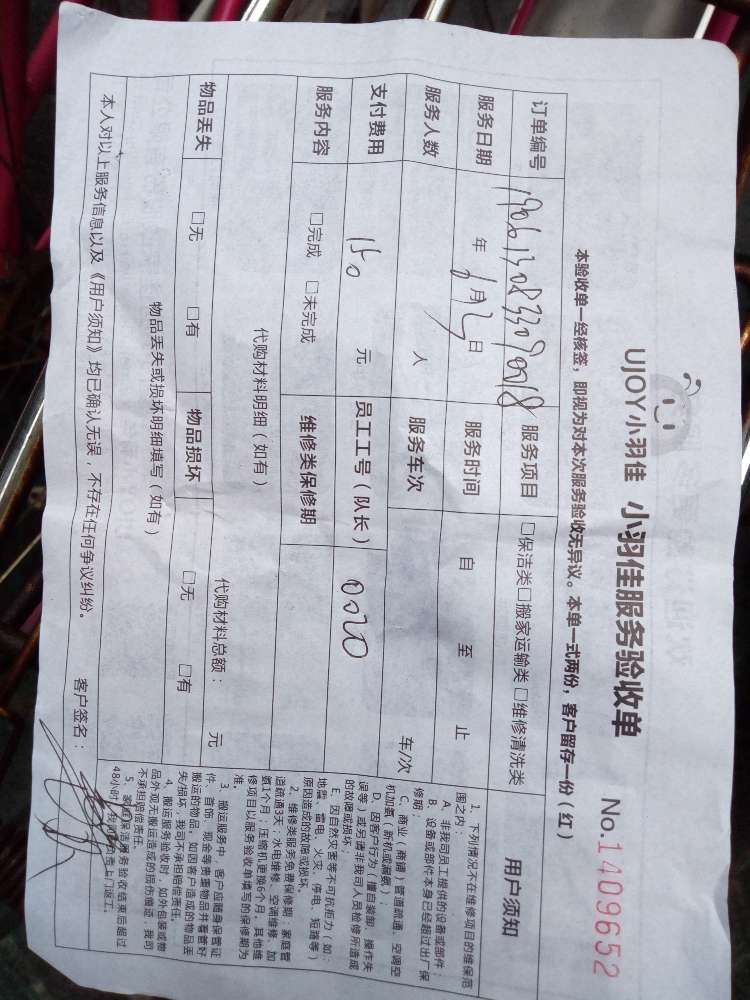 UJOY小羽佳 小羽佳服务验收单
No.1409652
本验收单一经核签，即视为对本次服务验收无异议。本单一式两份，客户留存一份（红）
订单编号 服务项目 □保洁类□搬家运输类□维修清洗类
服务日期 年 6月 日 服务时间 自 至 止
服务人数 人 服务车次 车/次
支付费用 150 元 员工工号（队长） 0020
服务内容 □完成 □未完成 维修类保修期
代购材料明细（如有）
代购材料总额： 元
物品丢失 □无 □有 物品损坏 □无 □有
物品丢失或损坏明细填写（如有）
本人对以上服务信息以及《用户须知》均已确认无误，不存在任何争议纠纷。
客户签名：
用户须知
1、下列情况不在维修项目的维保范
围之内：
A、非我司员工提供的设备或部件；
B、设备或部件本身已经超过出厂保
修期；
C、商业（商铺）管道疏通、空调空
机加氟（新机或漏氟）；
D、因客户行为（擅自装卸、操作失
误等）或另请非我司人员检修所造成
的故障或损坏；
E、因自然灾害等不可抗拒力（如：
地震、雷电、火灾、停电、短路等）
原因造成的故障或损坏。
2、维修类服务免费保修期：家庭管
道疏通3天；水电维修、空调维修、加
氨1个月；压缩机更换6个月。其他维
修项目以服务验收单填写的保修期为
准。
3、搬运服务中，客户应随身保管证
件、首饰、现金等贵重物品并看管好
搬运的物品，如因客户造成的物品丢
失/损坏，我司不承担赔偿责任。
4、搬运服务验收时，如外包装或物
品外观无搬运造成的损伤痕迹，我司
不承担赔偿责任。
5、家庭保洁服务验收结束后超过
48小时，我司不负责上门返工。